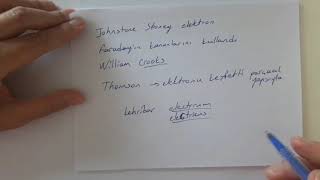 Johnstone Stoney elektron
Faraday'in kanunlarını kullandı
William Crooks
Thomson → elektronu keşfetti parçacık yapısıyla
kehribar electrum
electricus